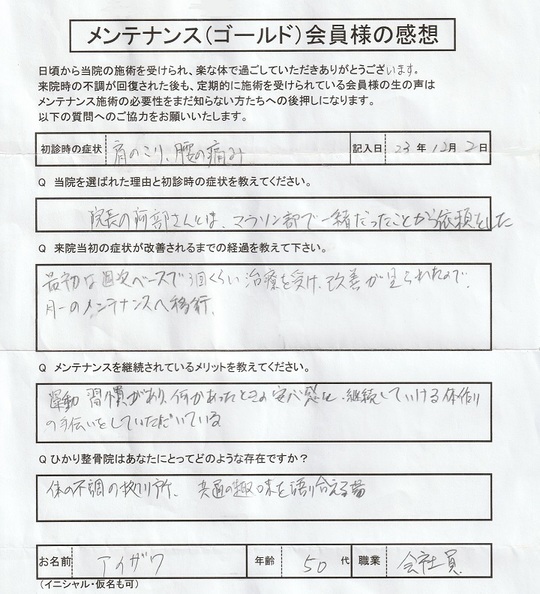 メンテナンス(ゴールド)会員様の感想
日頃から当院の施術を受けられ、楽な体で過ごしていただきありがとうございます。
来院時の不調が回復された後も、定期的に施術を受けられている会員様の生の声は
メンテナンス施術の必要性をまだ知らない方たちへの後押しになります。
以下の質問へのご協力をお願いいたします。
初診時の症状 肩のこり、腰の痛み 記入日 23年12月2日
Q 当院を選ばれた理由と初診時の症状を教えてください。
院長の阿部さんとは、マラソン部で一緒だったことから依頼をした
Q 来院当初の症状が改善されるまでの経過を教えて下さい。
最初は週次ベースで3回くらい治療を受け、改善が見られたので、
月一のメンテナンスへ移行。
Q メンテナンスを継続されているメリットを教えてください。
運動習慣があり、何かあったときの安心感と、継続していける体作り
の手伝いをしていただいている
Q ひかり整骨院はあなたにとってどのような存在ですか?
体の不調の拠り所、 共通の趣味を語り合える場
お名前 アイザワ 年齢 50代 職業 会社員
(イニシャル・仮名も可)